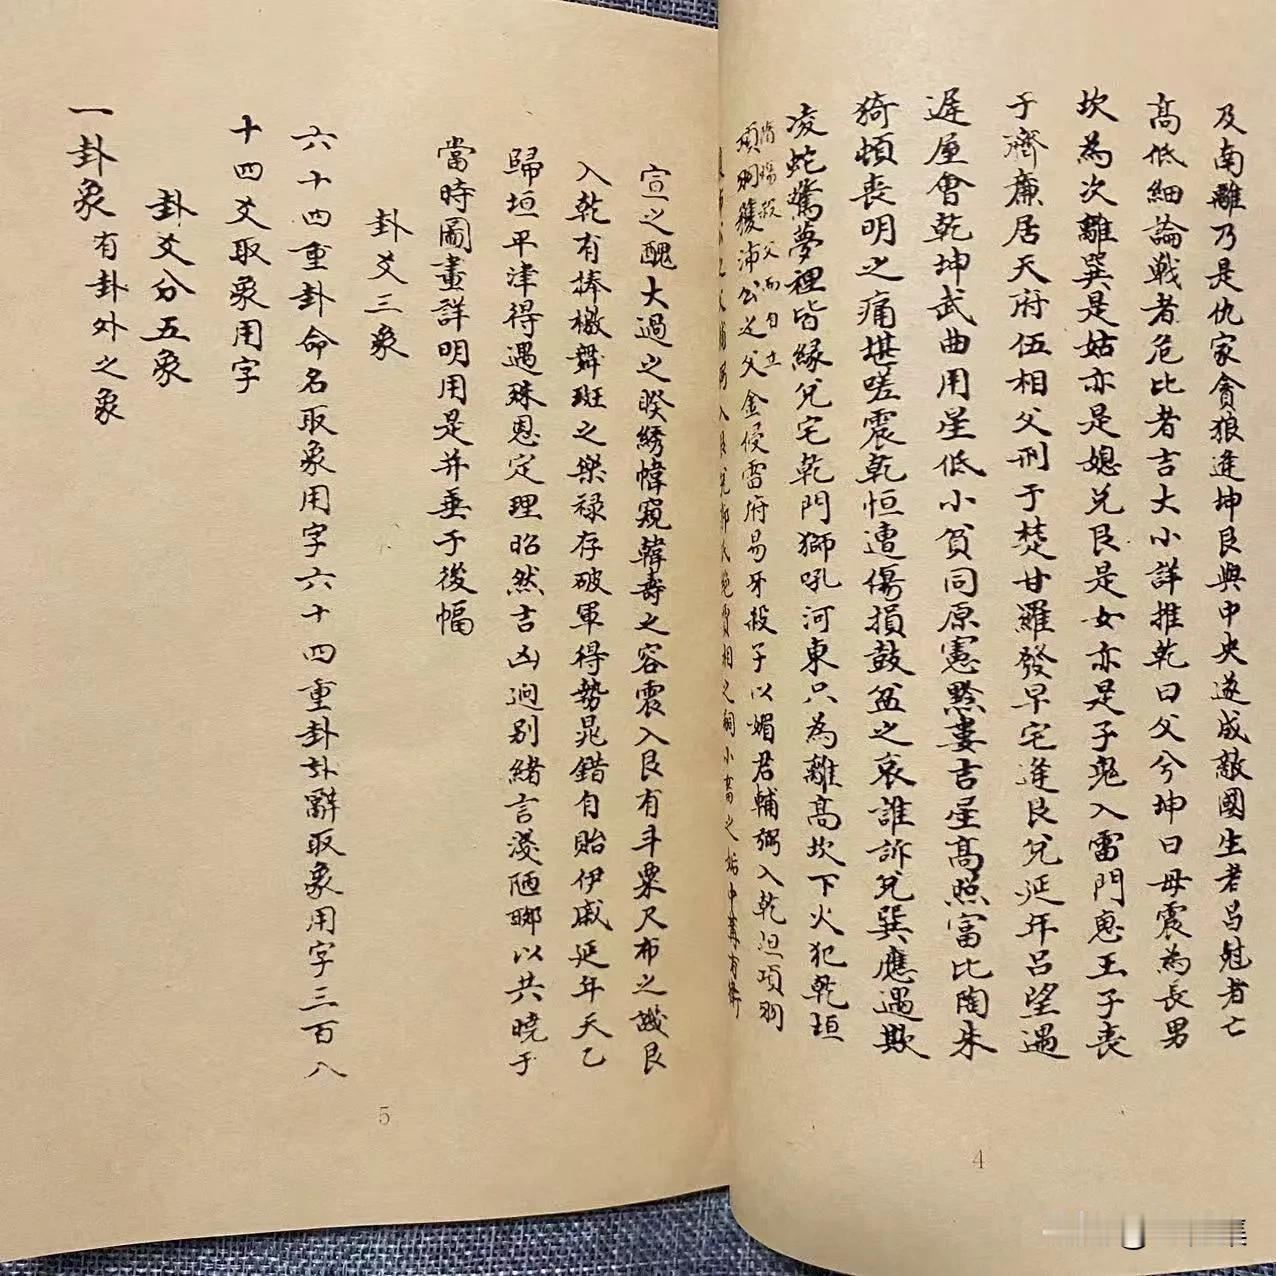 及南離乃是仇家貪狼逢坤艮與中央遂成敵國生者昌尅者亡
高低細論戰者危比者吉大小詳推乾曰父兮坤曰母震為長男
坎為次離巽是姑亦是媳兌艮是女亦是子鬼入雷門惠王子喪
于齊廉居天府伍相父刑于楚甘羅發早宅逢艮兌延年呂望遇
遲屋會乾坤武曲用星低小貧同原憲黔婁吉星高照富比陶朱
猗頓喪明之痛堪嗟震乾恒遭傷損鼓盆之哀誰訴兌巽應遇欺
凌蛇驚夢裡皆緣兌宅乾門獅吼河東只為離高坎下火犯乾垣
隋煬殺父而自立
項羽獲沛公之父金侵雷府易牙殺子以媚君輔弼入乾垣項羽
小畜之姤中冓有
宣之醜大過之睽綉幃窺韓壽之容震入艮有斗粟尺布之譏艮
入乾有捧檄舞斑之樂祿存破軍得勢晁錯自貽伊戚延年天乙
歸垣平津得遇殊恩定理昭然吉凶逈別緒言淺陋鄙以共曉于
當時圖畫詳明用是并垂于後幅
卦爻三象
六十四重卦命名取象用字六十四重卦卦辭取象用字三百八
十四爻取象用字
卦爻分五象
一卦象有卦外之象
5
4